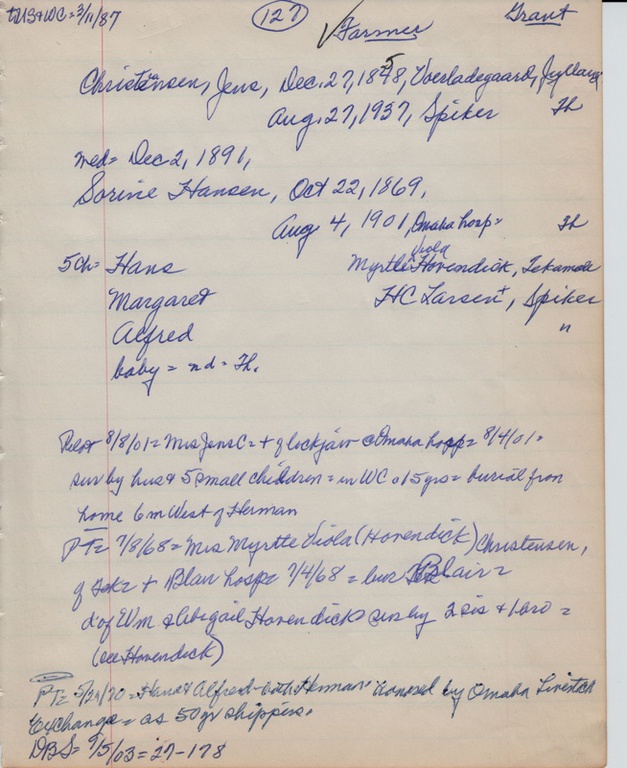 to US & WC = 3/11/87 127 ✓ Farmer Grant
Christensen, Jens, Dec. 27, 1845, Voerladegaard, Jylland
Aug. 27, 1937, Spiker Th
med = Dec 2, 1891,
Sorine Hansen, Oct 22, 1869,
Aug 4, 1901, Omaha hosp = Th
5 Ch = Hans Myrtle Viola Hovendick, Tekamah
Margaret HC Larsen +, Spiker
Alfred "
baby = nd = Th.
Pilot 8/8/01 = Mrs Jens C = + of lockjaw @ Omaha hosp = 8/4/01 =
sur by hus & 5 small children = in WC 15 yrs = burial from
home 6 m West of Herman
PT = 7/8/68 = Mrs Myrtle Viola (Hovendick) Christensen,
of Tek = + Blair hosp = 7/4/68 = bur Blair =
d of Wm & Abigail Hovendick sur by 2 sis & 1 bro =
(see Hovendick)
PT = 5/21/70 = Hans & Alfred - both Herman honored by Omaha Livestock
Exchange = as 50 yr shippers.
DBS = 9/5/03 = 27-178